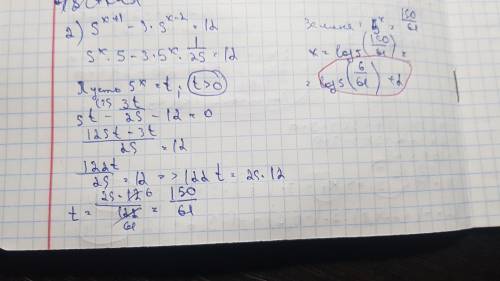 2) 5^{x+1} - 3 · 5^{x-2} = 12
5^x · 5 - 3 · 5^x · \frac{1}{25} = 12
Пусть 5^x = t; t > 0
5t^{(25} - \frac{3t}{25} - 12 = 0
\frac{125t - 3t}{25} = 12
\frac{122t}{25} = 12 => 122t = 25 · 12
t = \frac{25 · 12 6}{122 61} = \frac{150}{61}
Замена: 5^x = \frac{150}{61}
x = log5(\frac{150}{61}) =
= log5(\frac{6}{61}) + 2